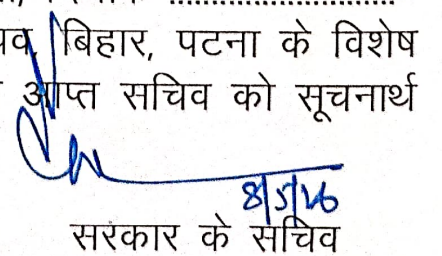 बिहार, पटना के विशेष
आप्त सचिव को सूचनार्थ
8/5/26
सरकार के सचिव